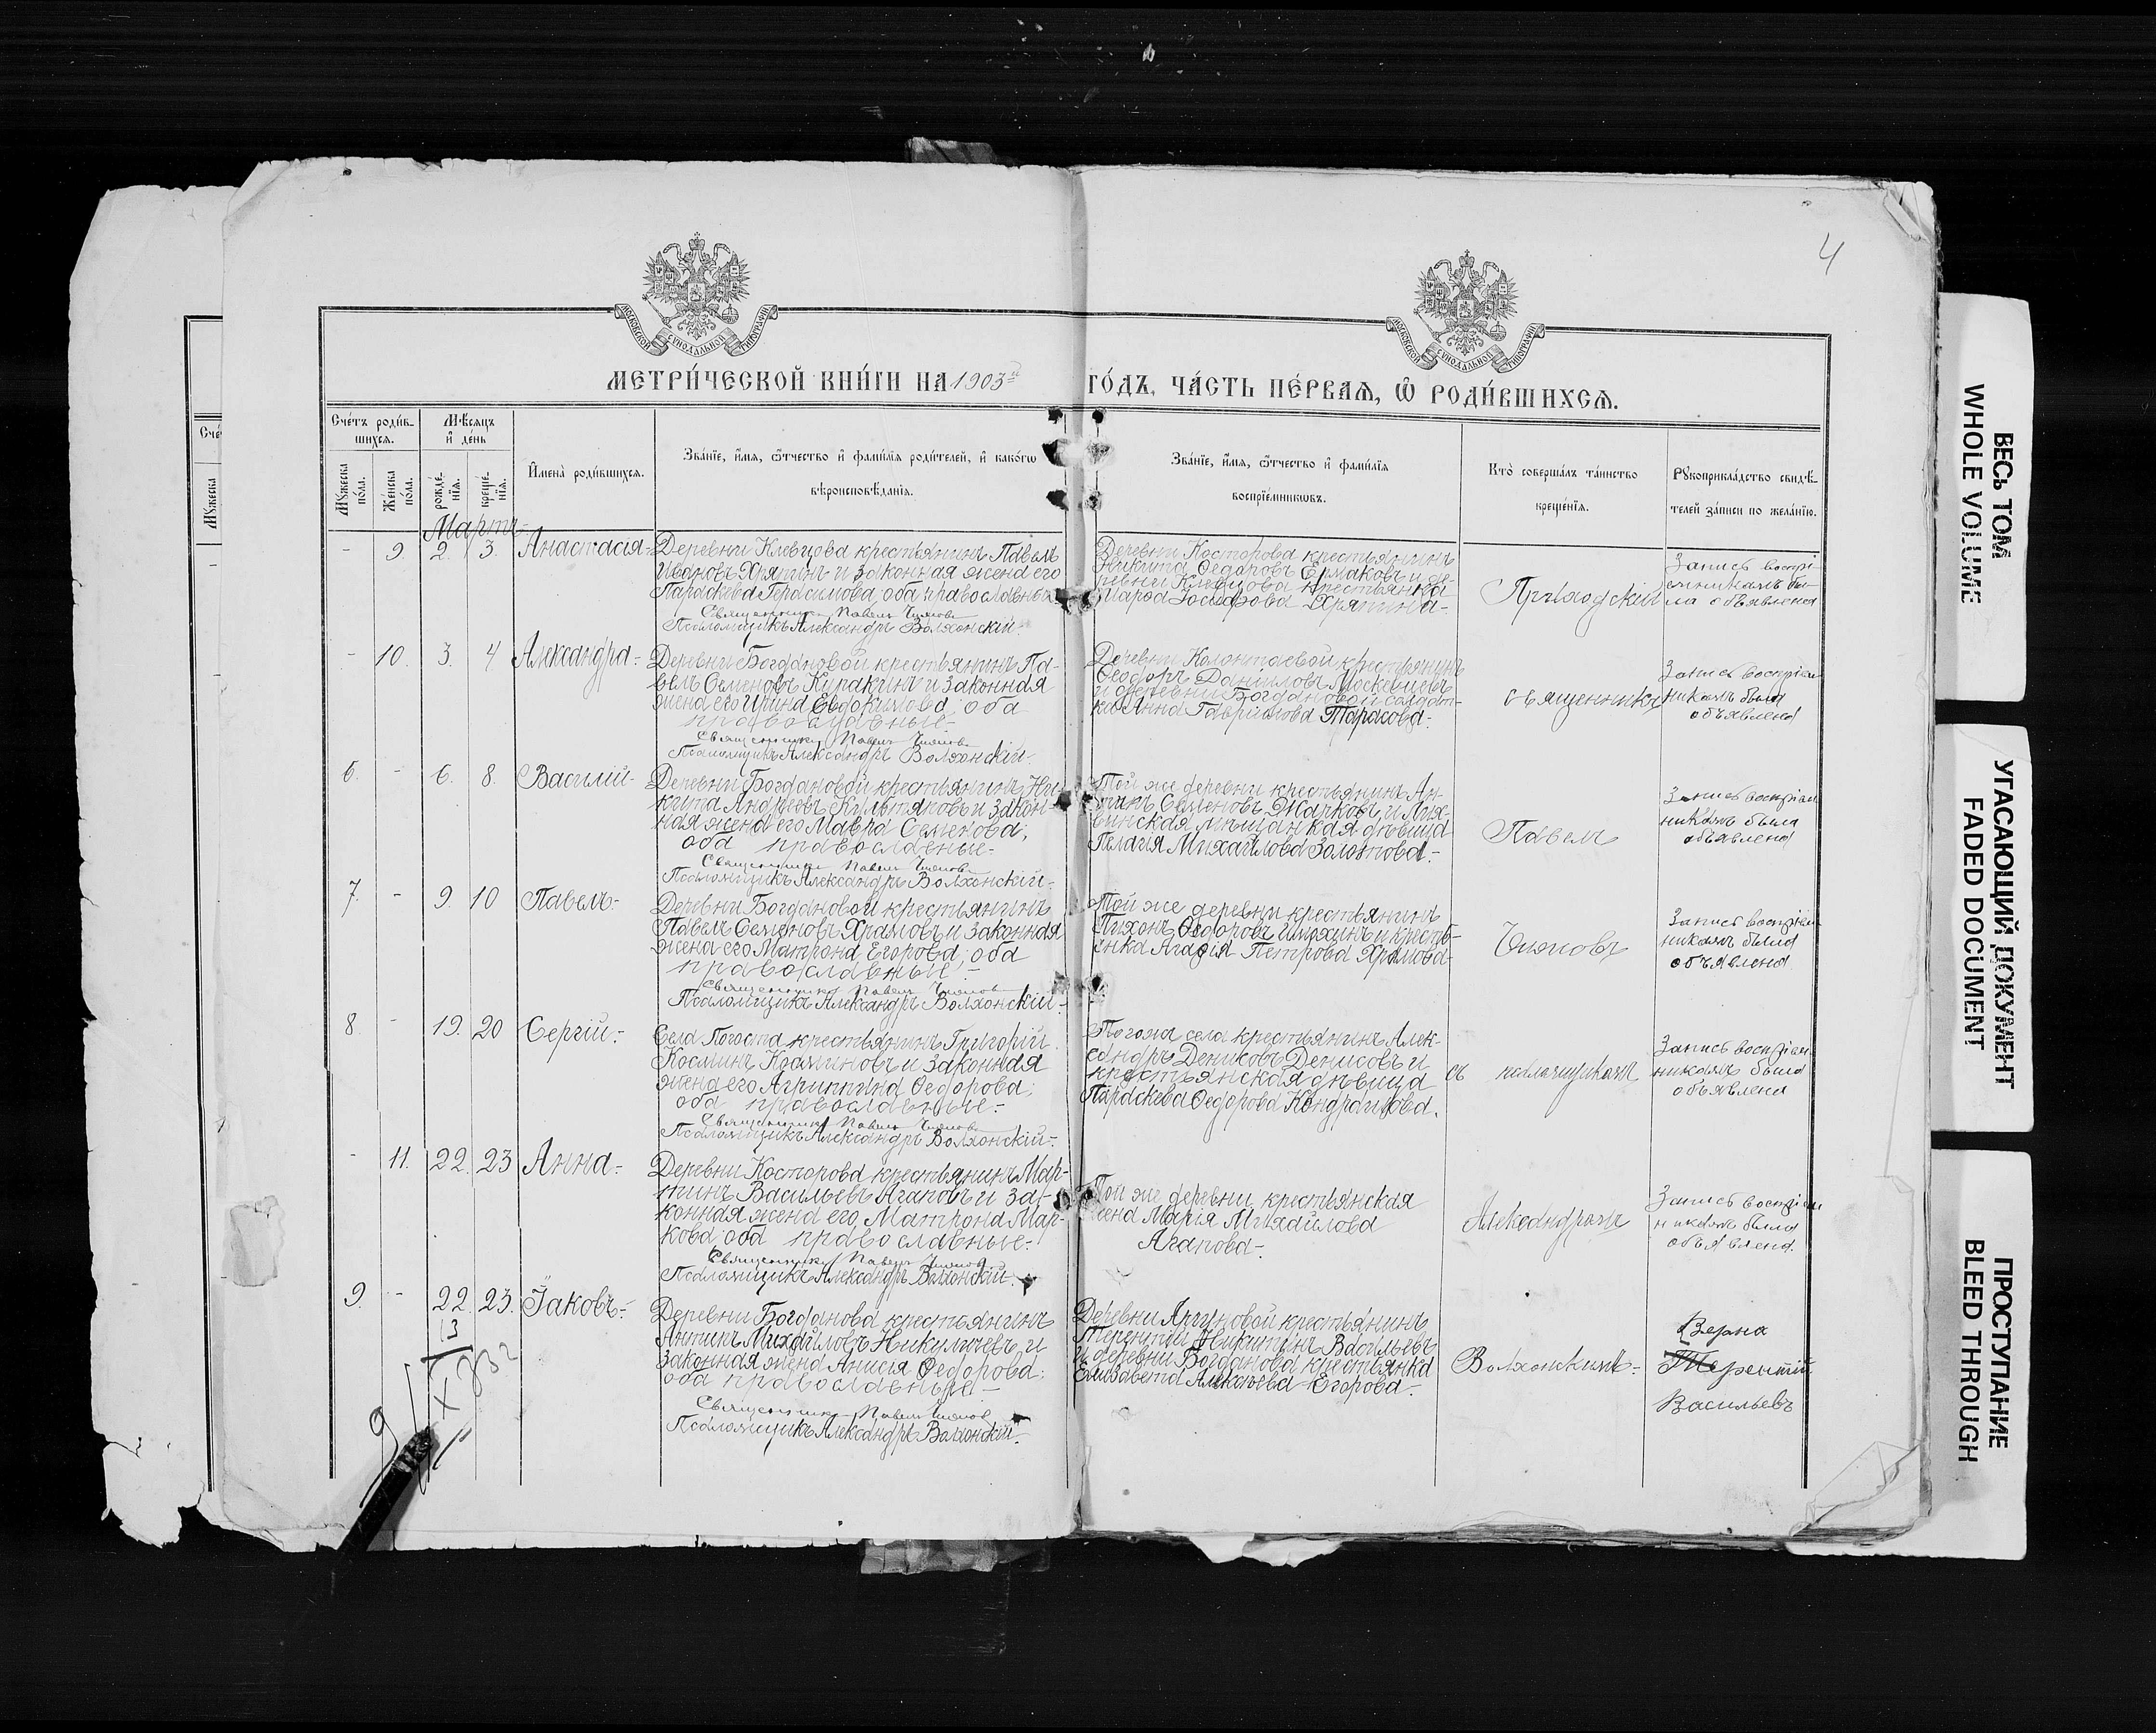 4
МОСКОВСКОЙ СУНОДАЛЬНОЙ ТИПОГРАФІИ
МОСКОВСКОЙ СУНОДАЛЬНОЙ ТИПОГРАФІИ
МЕТРИ́ЧЕСКОЙ КНИ́ГИ НА 1903й ГО́ДЪ, ЧА́СТЬ ПЕ́РВАѦ, Ѽ РОДИ́ВШИХСѦ.
Сче́тъ роди́в-
шихсѧ.
Мѣ́сѧцъ
и҆ де́нь
Мꙋ́жеска
по́ла.
Же́нска
по́ла.
рожде́-
нїѧ.
креще́-
нїѧ.
И҆мена̀ роди́вшихсѧ.
Зва́нїе, и҆́мѧ, ѻ҆́тчество и҆ фами́лїѧ роди́телей, и҆ како́гѡ
вѣроисповѣ́данїѧ.
Зва́нїе, и҆́мѧ, ѻ҆́тчество и҆ фами́лїѧ
воспрїе́мникѡвъ.
Кто̀ соверша́лъ та́инство
креще́нїѧ.
Рꙋкоприкла́дство свидѣ́-
телей за́писи по жела́нїю.
Мартъ
- 9. 2. 3. Анастасія-
Деревни Клевцова крестьянинъ Павелъ
Ивановъ Хряпинъ и законная жена его
Параскева Герасимова, оба православные
Священникъ Павелъ
Псаломщикъ Александръ Волхонскій.
Деревни Косторова крестьянинъ
Никита Ѳедоровъ Ермаковъ и де-
ревни Клевцова крестьянка
Іосифова Хряпина-
Приходскій
Запись воспрі-
емникамъ бы-
ла объявлена
- 10. 3. 4 Александра-
Деревни Богдановой крестьянинъ Па-
велъ Семеновъ Куракинъ и законная
жена его Ирина Евдокимова, оба
православные-
Священникъ Павелъ
Псаломщикъ Александръ Волхонскій-
Деревни Колонтаевой крестьянинъ
Ѳеодоръ Даниловъ Москвичевъ
и деревни Богдановой солдат-
ка Анна Гавріилова Тарасова-
священникъ
Запись воспріем
никамъ была
объявлена
6. - 6. 8. Василій-
Деревни Богдановой крестьянинъ Ни-
кита Андреевъ и закон-
ная жена его Мавра Семенова,
оба православные-
Священникъ Павелъ
Псаломщикъ Александръ Волхонскій-
Той же деревни крестьянинъ Ан-
типъ Семеновъ Жарковъ и Лих-
винская мѣщанская дѣвица
Пелагія Михайлова Золотова-
Павелъ
Запись воспріем
никамъ была
объявлена
7. - 9. 10 Павелъ-
Деревни Богдановой крестьянинъ
Павелъ Семеновъ Храмовъ и законная
жена его Матрона Егорова, оба
православные-
Священникъ Павелъ
Псаломщикъ Александръ Волхонскій-
Той же деревни крестьянинъ
Тихонъ Ѳедоровъ и кресть-
янка Агафія Петрова Храмова-
Запись воспріем
никамъ была
объявлена
8. - 19. 20 Сергій-
Села Погоста крестьянинъ Григорій
Косминъ и законная
жена его Агриппина Ѳедорова;
оба православные-
Священникъ Павелъ
Псаломщикъ Александръ Волхонскій-
Тогожъ села крестьянинъ Алек-
сандръ Денисовъ и
крестьянская дѣвица
Параскева Ѳедорова Кондрашова.
съ псаломщикомъ
Запись воспріем
никамъ была
объявлена
- 11. 22. 23 Анна-
Деревни Косторова крестьянинъ Мар-
тинъ Васильевъ Агаповъ и за-
конная жена его Матрона Мар-
кова оба православные-
Священникъ Павелъ
Псаломщикъ Александръ Волхонскій-
Той же деревни крестьянская
жена Марія Михайлова
Агапова-
Александромъ
Запись воспріем
никамъ была
объявлена.
9. - 22. 23. Іаковъ-
Деревни Богданова крестьянинъ
Антипъ Михайловъ Никуличевъ и
законная жена Анисія Ѳедорова;
оба православные-
Священникъ Павелъ
Псаломщикъ Александръ Волхонскій-
Деревни крестьянинъ
Терентій Никитинъ Васильевъ
и деревни Богданова крестьянка
Елизавета Алексѣева Егорова-
Волхонскимъ-
Терентій
Васильевъ
ВЕСЬ ТОМ
WHOLE VOLUME
УГАСАЮЩИЙ ДОКУМЕНТ
FADED DOCUMENT
ПРОСТУПАНИЕ
BLEED THROUGH